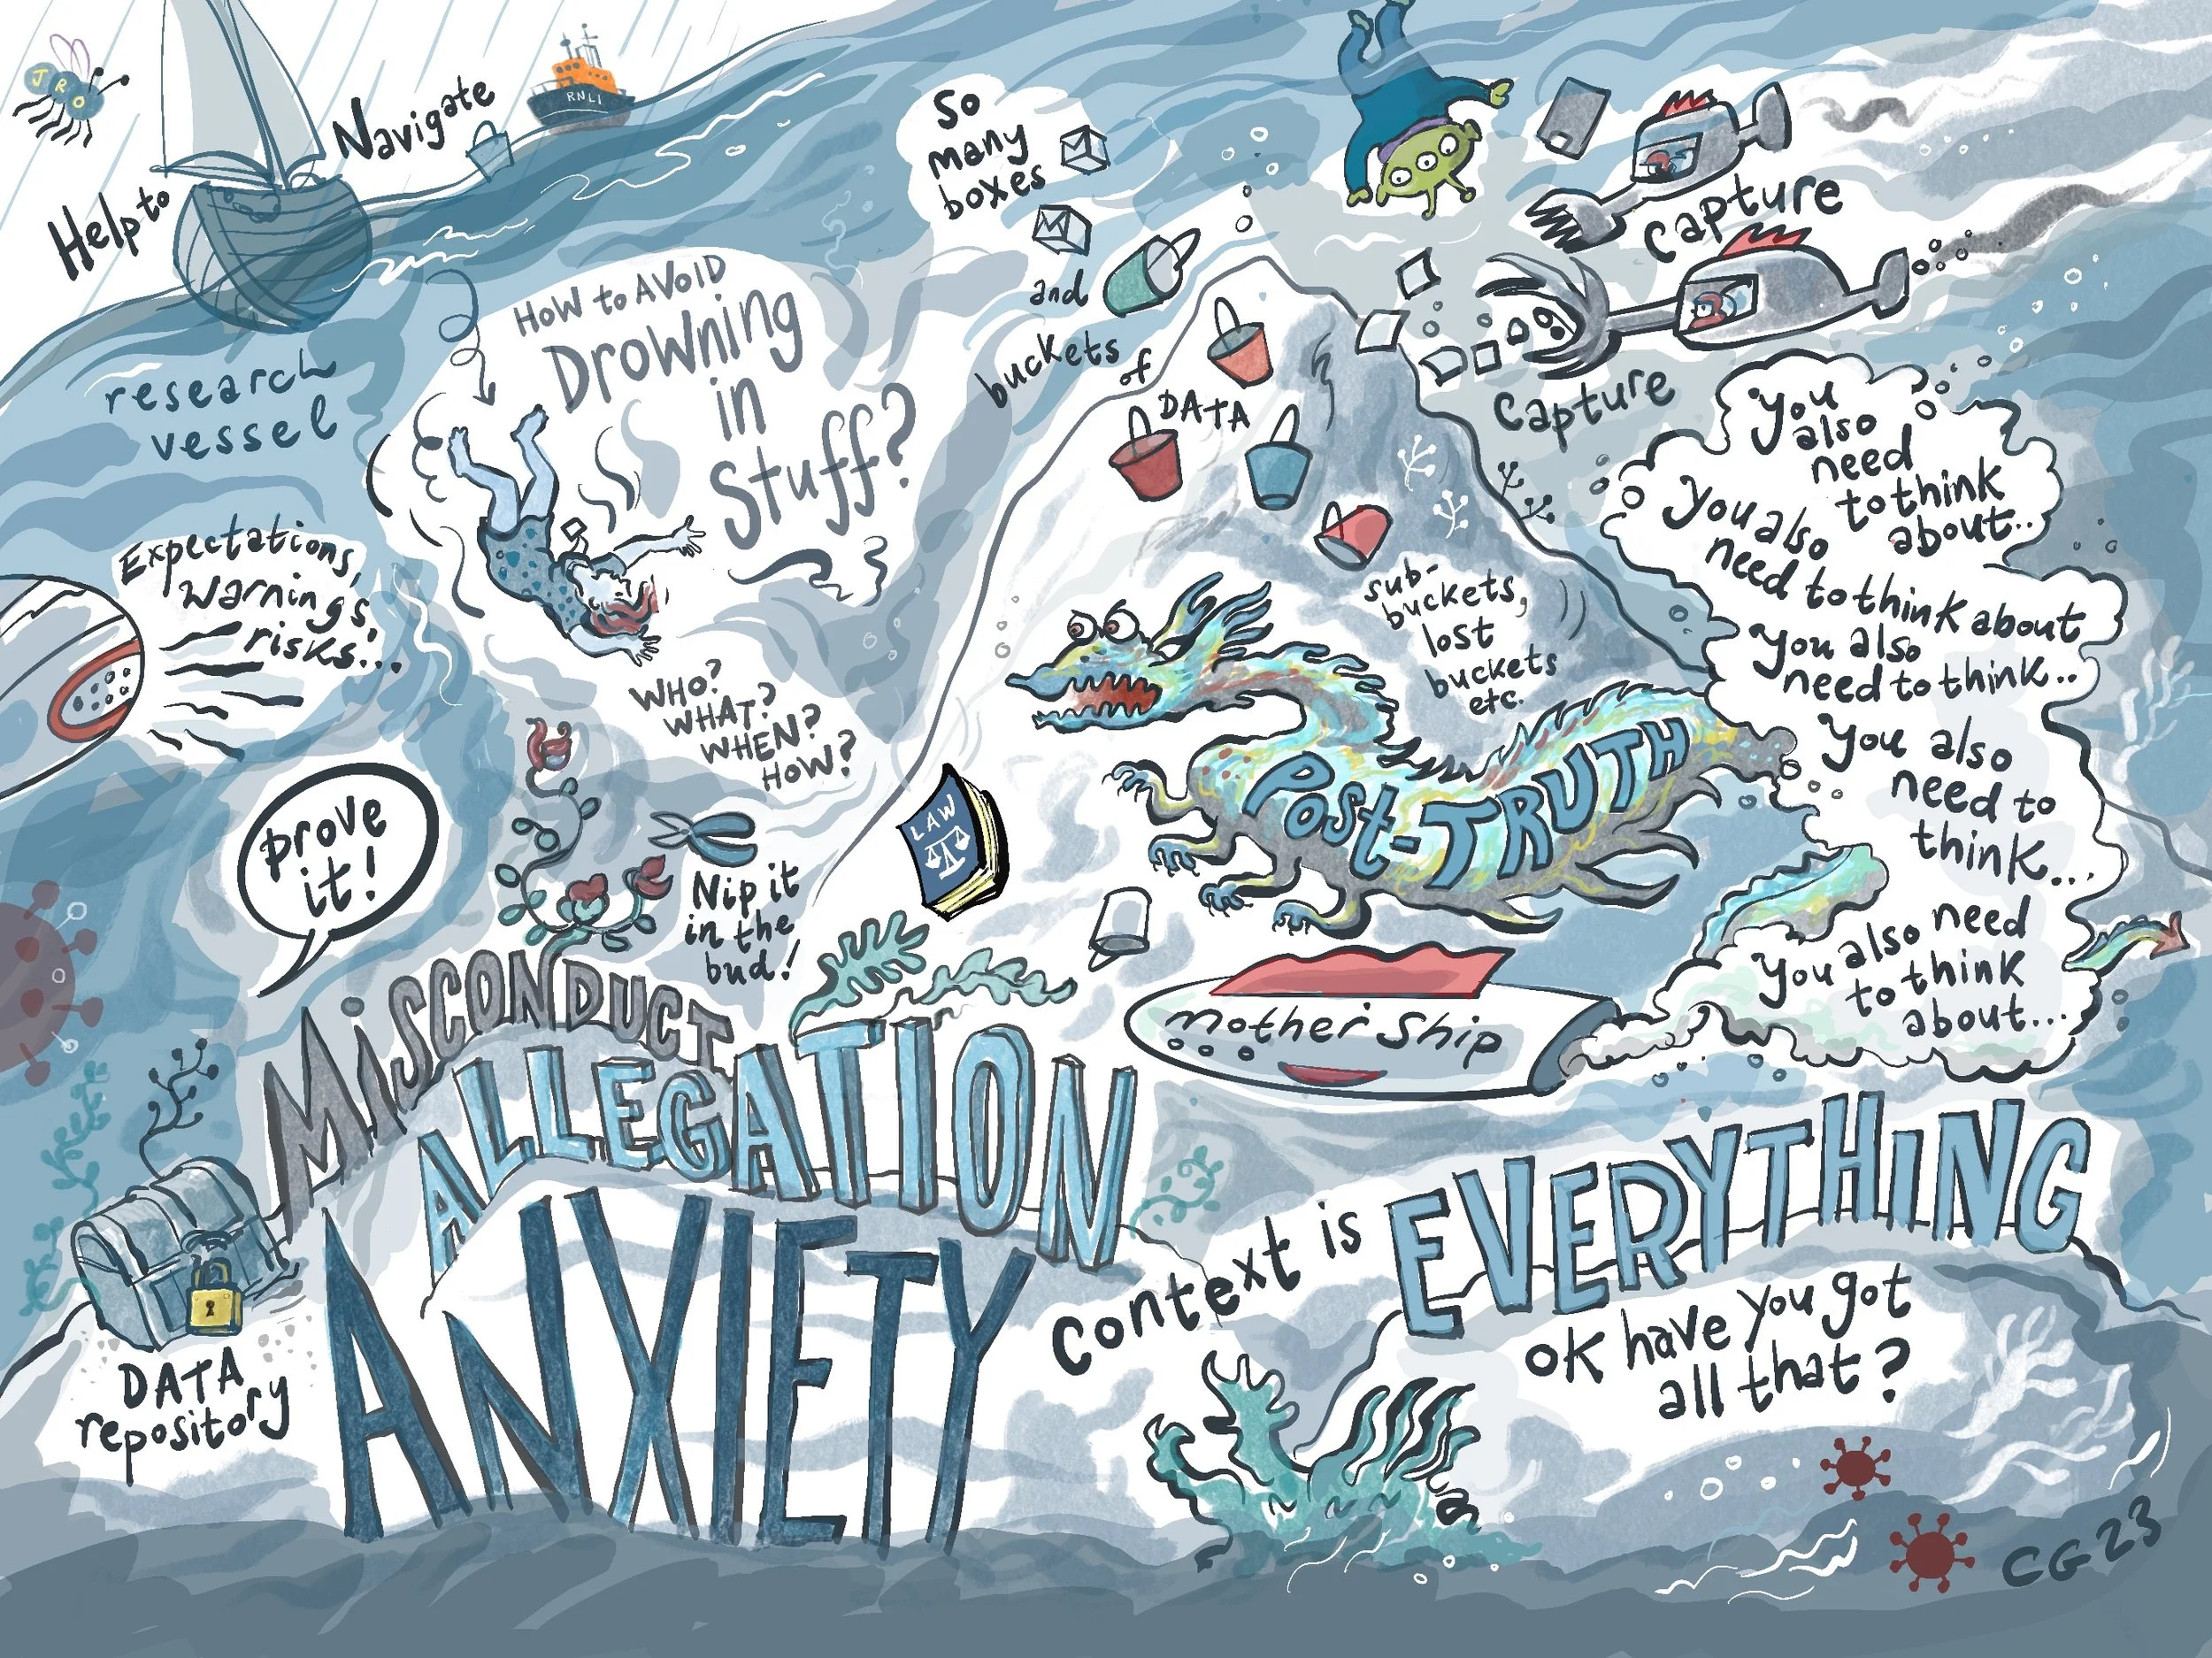 JRO
Help to
Navigate
RNLI
research
vessel
HOW to AVOID
Drowning
in
Stuff?
So
many
boxes
and
buckets
of
DATA
Capture
Capture
Expectations,
warnings,
risks...
WHO?
WHAT?
WHEN?
HOW?
sub-
buckets,
lost
buckets
etc.
You
also
need
to think
about..
You also
need to think about
You also
need to think..
You also
need to
think...
You also need
to think
about...
Post-TRUTH
LAW
prove
it!
Nip it
in the
bud!
mother ship
MiSCONDUCT
ALLEGATION
ANXIETY
DATA
repository
Context is
EVERYTHiNG
OK have you got
all that?
CG23